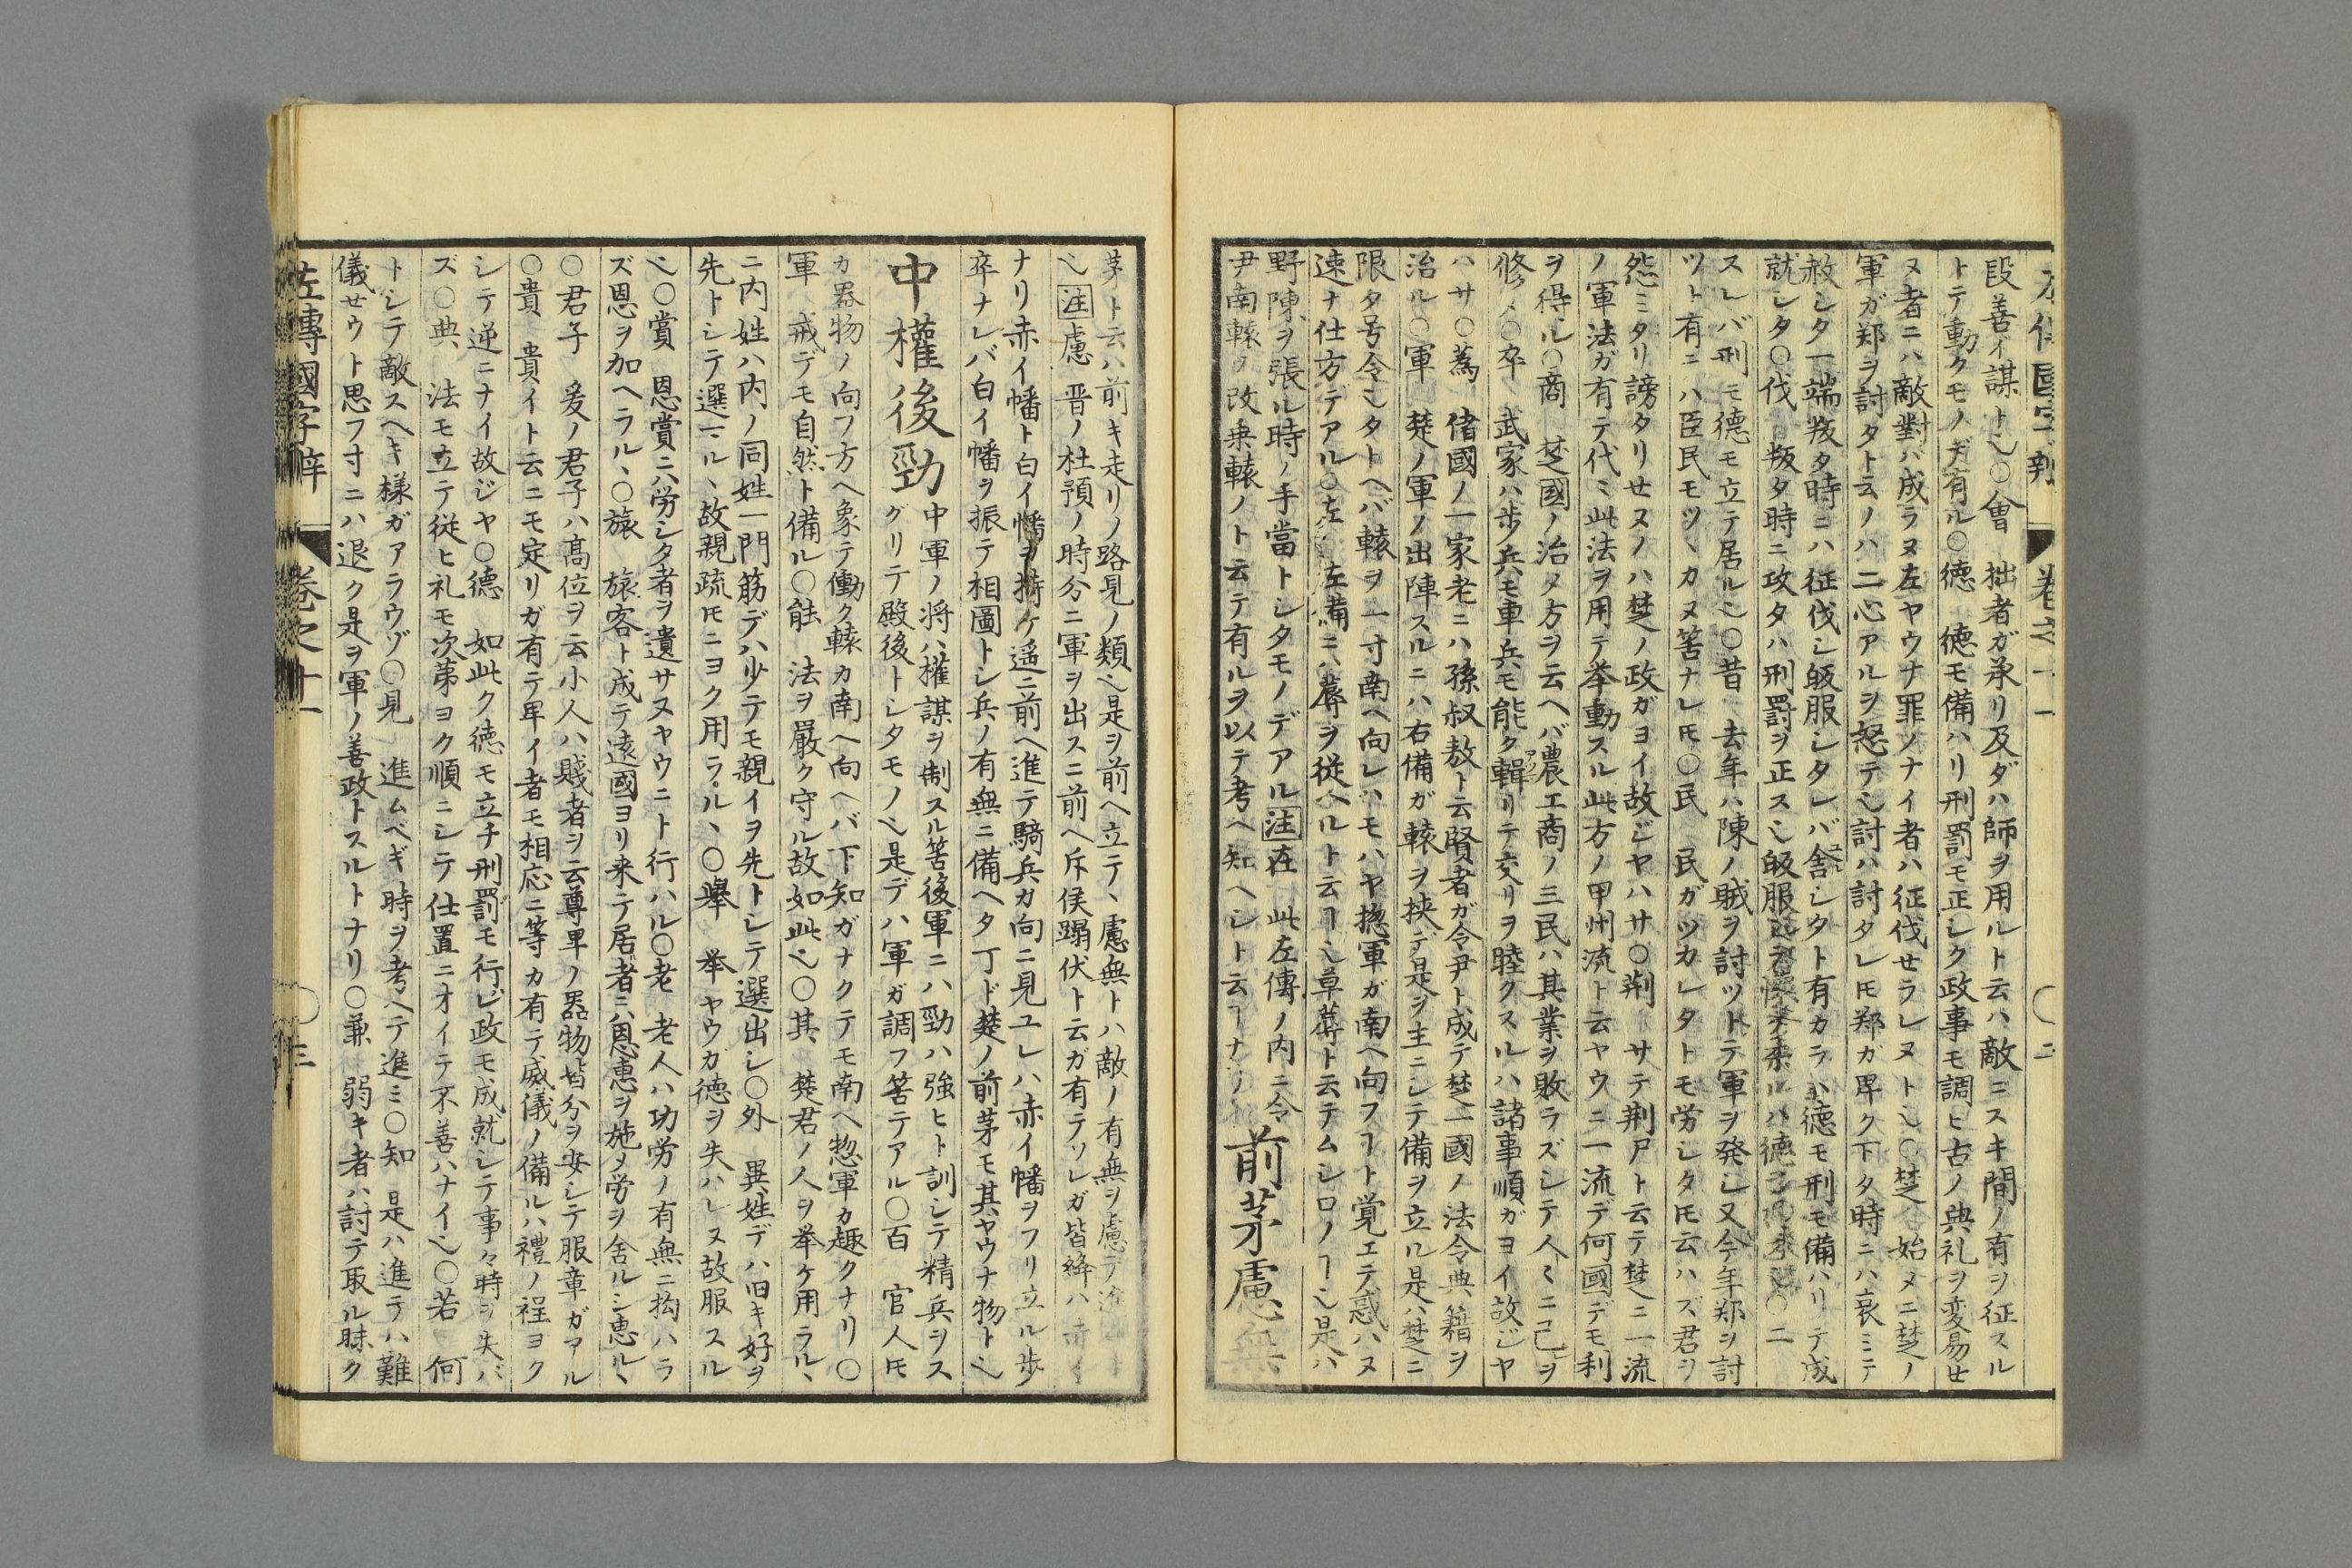 段善イ謀ト乄○會　拙者ガ承リ及ダハ師ヲ用ルト云ハ敵ニスキ間ノ有ヲ征スル
トテ動クモノデ有ル○徳　徳モ備ハリ刑罰モ正シク政事モ調ヒ古ノ典礼ヲ変易セ
ヌ者ニハ敵對ハ成ラヌ左ヤウナ罪ソナイ者ハ征伐セラレヌト乄○楚　始メニ楚ノ
軍ガ郑ヲ討タト云ノハ二心アルヲ怒テ乄討ハ討タレ𪜈郑ガ卑ク下タ時ニハ哀ミテ
赦シタ一端叛タ時ニハ征伐シ皈服シタレバ舎シタト有カラハ徳モ刑モ備ハリテ成
就シタ○伐　叛タ時ニ攻タハ刑罰ヲ正ス乄皈服
スレバ刑モ德モ立テ居ル乄○昔　去年ハ陳ノ賊ヲ討ツトテ軍ヲ発シ又今年郑ヲ討
ツト有ニハ臣民モツヽカヌ筈ナレ𪜈○民　民ガツカレタトモ労シタ𪜈云ハズ君ヲ
怨ミタリ謗タリセヌノハ楚ノ政ガヨイ故ジヤハサ○荆　サテ荆尸ト云テ楚ニ一流
ノ軍法ガ有テ代〻此法ヲ用テ举動スル此方ノ甲州流ト云ヤウニ一流デ何國デモ利
ヲ得ル○商　楚國ノ治メ方ヲ云ヘバ農工商ノ三民ハ其業ヲ敗ラズシテ人〻ニ己ヲ
修メ○卒　武家ハ歩ノ兵モ車兵モ能ク輯リテ交リヲ睦クスルハ諸事順ガヨイ故ジヤ
ハサ○蒍　偖國ノ一家老ニハ孫叔敖ト云賢者ガ令尹ト成テ楚一國ノ法令典籍ヲ
治ル○軍　楚ノ軍ノ出陣スルニハ右備ガ轅ヲ挟デ是ヲ主ニシテ備ヲ立ル是ハ楚ニ
限タ号令シタトヘバ轅ヲ一寸南ヘ向レハモハヤ惣軍ガ南ヘ向フヿト覚エテ惑ハヌ
速ナ仕方デアル○左　左備ニハ蓐ヲ從ヘルト云ヿ乄草蓐ト云テムシロノヿ乄是ハ
野陳ヲ張ル時ノ手當トシタモノデアル注在　此左傳ノ内ニ令
尹南轅ヲ改乗轅ノト云テ有ルヲ以テ考ヘ知ヘシト云ヿナリ　前茅慮無
茅ト云ハ前キ走リノ路見ノ類乄是ヲ前ヘ立テヽ慮無トハ敵ノ有無ヲ慮テ
乄注慮　晋ノ杜預ノ時分ニ軍ヲ出スニ前ヘ斥侯蹋伏ト云ガ有テソレガ皆絳ハ赤イ
ナリ赤イ幡ト白イ幡ヲ持ケ遥ニ前ヘ進テ騎兵ガ向ニ見ユレハ赤イ幡ヲフリ立ル歩
卒ナレバ白イ幡ヲ振テ相圖トシ兵ノ有無ニ備ヘタ丁ド楚ノ前茅モ其ヤウナ物ト乄
中權後勁　中軍ノ将ハ權謀ヲ制スル筈後軍ニハ勁ハ強ヒト訓シテ精兵ヲス
グリテ殿後トシタモノ乄是デハ軍ガ調フ筈テアル○百　官人𪜈
カ器物ノ向フ方ヘ象テ働ク轅カ南ヘ向ヘバ下知ガナクテモ南ヘ惣軍カ趣クナリ○
軍　戒デモ自然ト備ル○能　法ヲ嚴ク守ル故如此乄○其　楚君ノ人ヲ举ケ用ラルヽ
ニ内姓ハ内ノ同姓一門筋デハ少テモ親イヲ先トシテ選出シ○外　異姓デハ旧キ好ヲ
先トシテ選マルヽ故親疏𪜈ニヨク用ラルヽ○舉　举ヤウカ德ヲ失ハレヌ故服スル
乄○賞　恩賞ニハ労シタ者ヲ遺サヌヤウニト行ハル○老　老人ハ功労ノ有無ニ拘ハラ
ズ恩ヲ加ヘラルヽ○旅　旅客ト成テ遠國ヨリ来テ居者ニハ恩恵ヲ施メ労ヲ舎ルシ恵ルヽ
○君子　爰ノ君子ハ高位ヲ云小人ハ賤者ヲ云尊卑ノ器物皆分ヲ安シテ服章ガアル
○貴　貴イト云ニモ定リガ有テ卑イ者モ相応ニ等カ有テ威儀ノ備ルハ禮ノ程ヨク
シテ逆ニナイ故ジヤ○德　如此ク徳モ立チ刑罰モ行ビ政モ成就シテ事々時ヲ失バ
ズ○典　法モ立テ従ヒ礼モ次第ヨク順ニシテ仕置ニオイテ不善ハナイ乄○若　何
トシテ敵スヘキ様ガアラウゾ○見　進ムベキ時ヲ考ヘテ進ミ○知　是ハ進テハ難
儀セウト思フ寸ニハ退ク是ヲ軍ノ善政トスルトナリ○兼　弱キ者ハ討テ取ル昧ク
左傳國字辯　巻之十一　○三